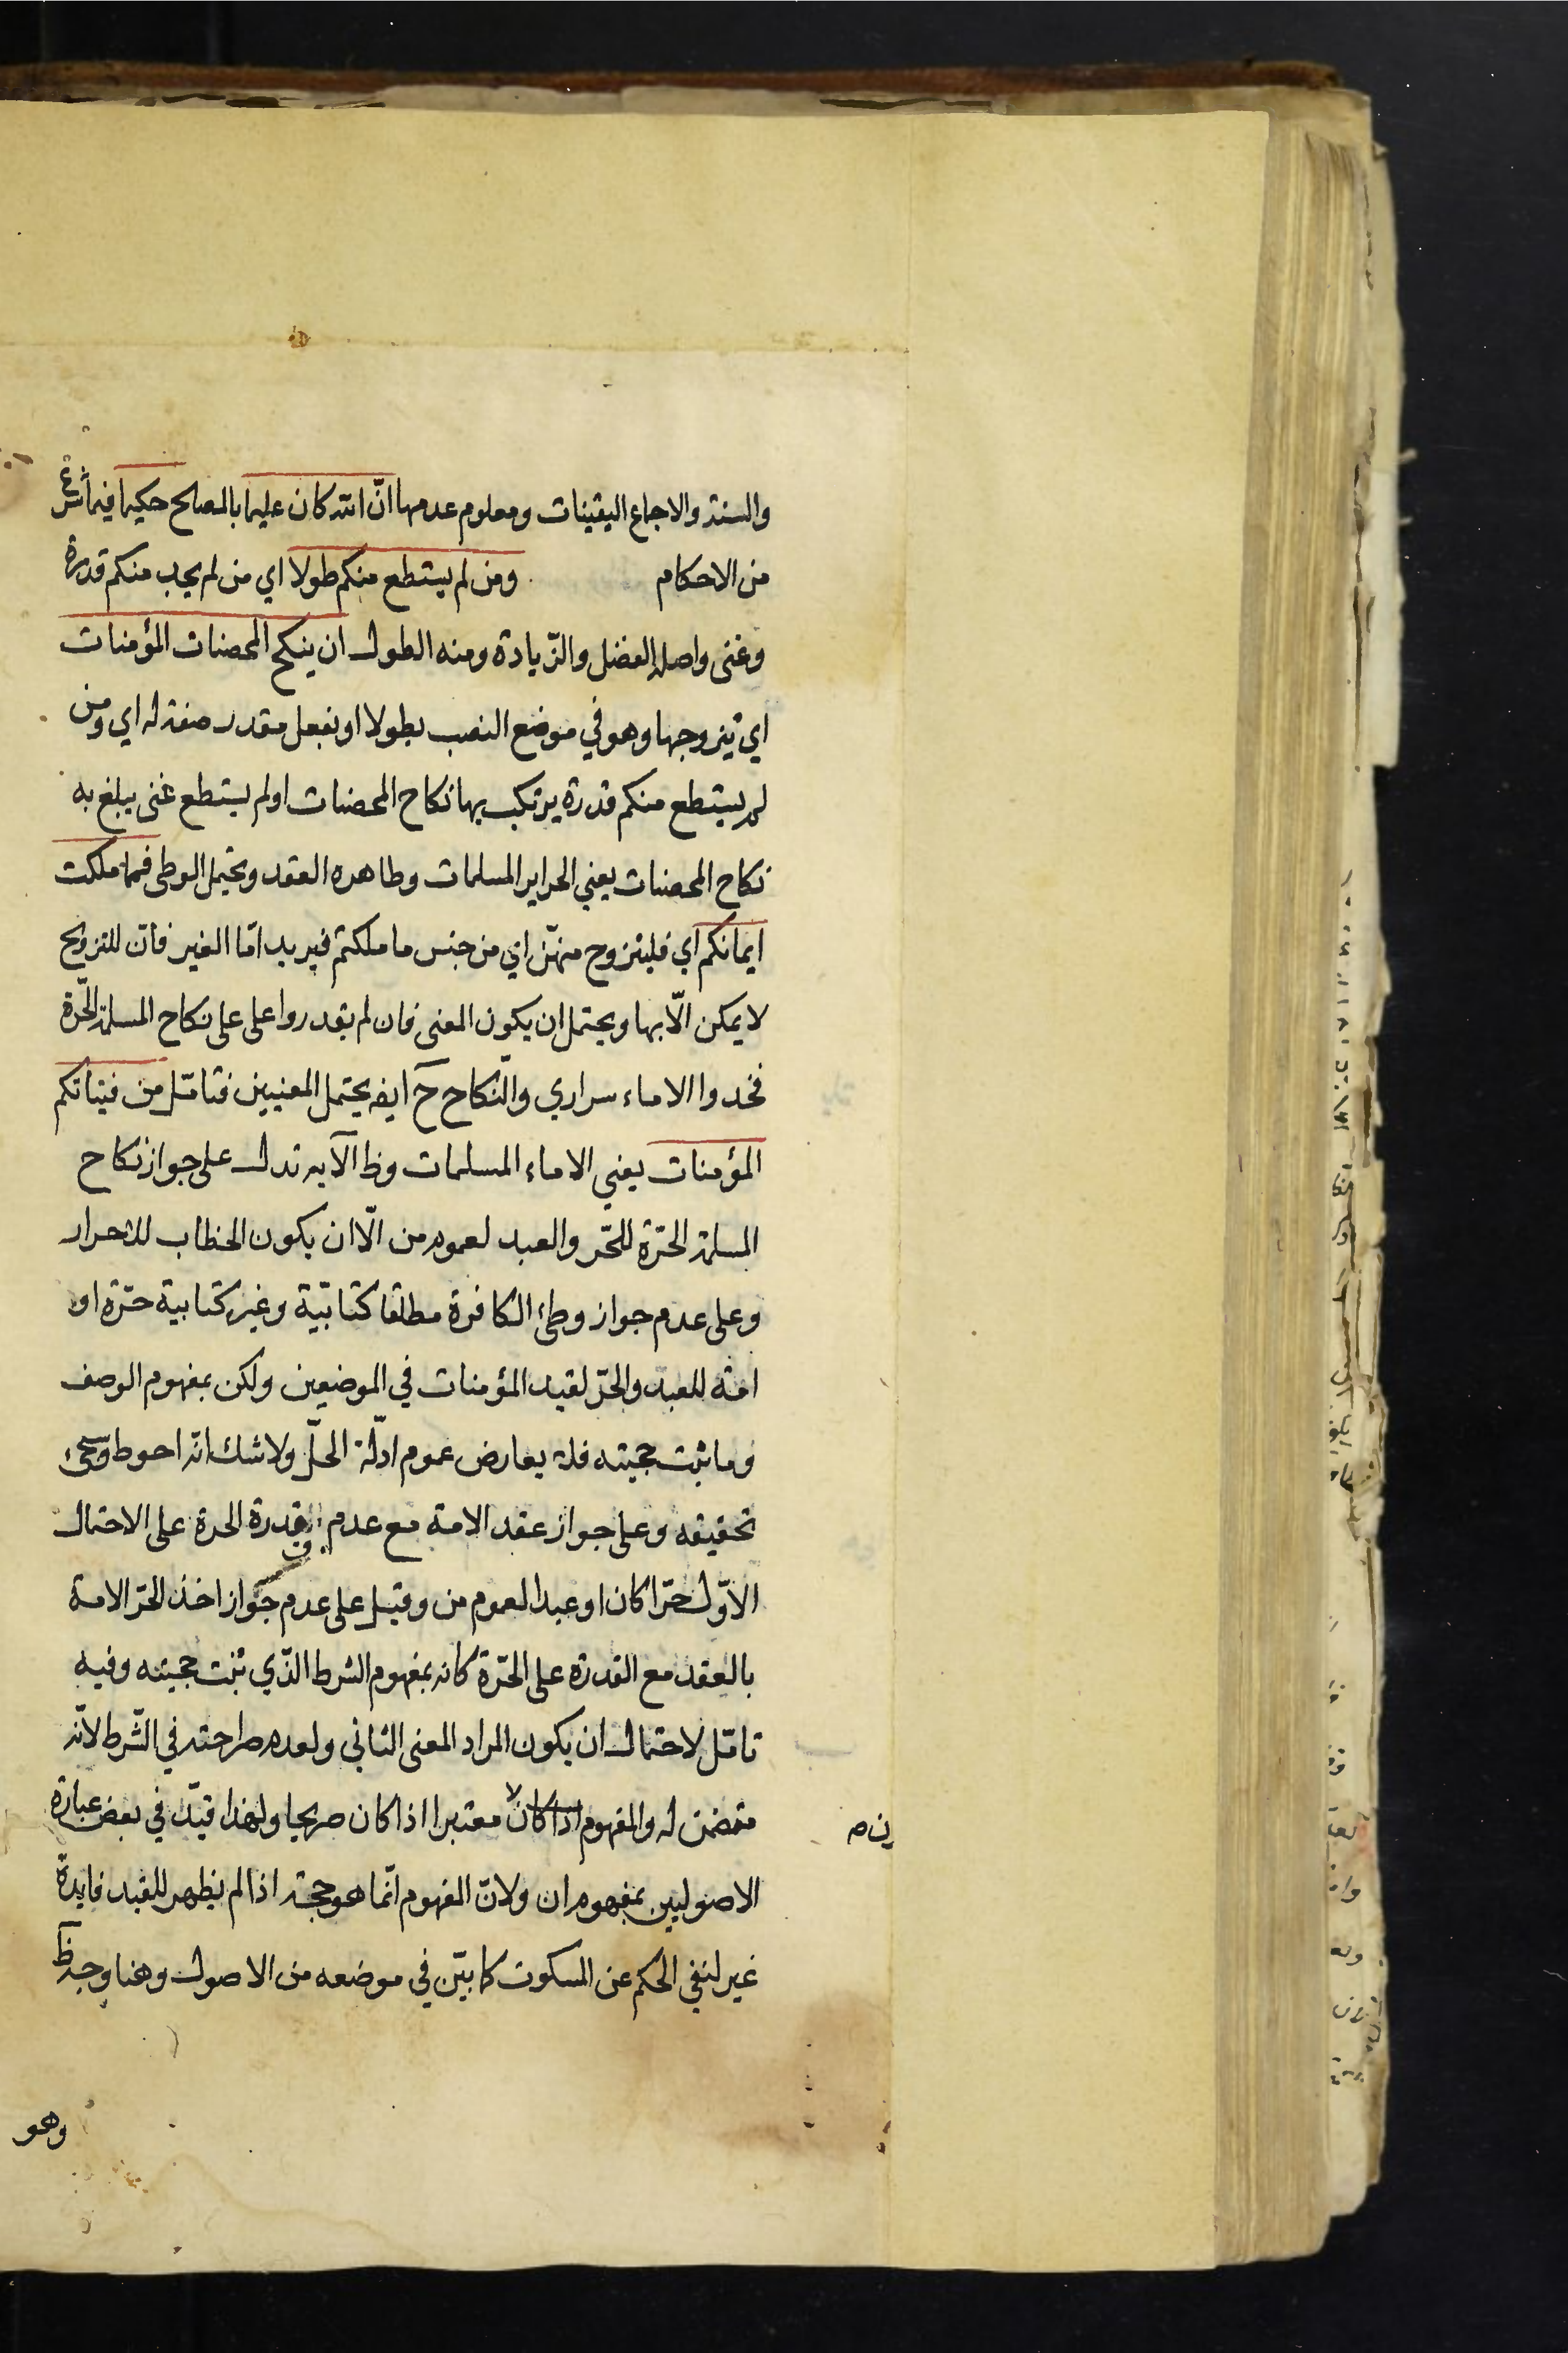 والسنة والاجماع اليقينات ومعلوم عدمها انّ الله كان عليما بالمصالح حكيما فيما شرع
من الاحكام ومن لم يستطع منكم طولا اي من لم يجد منكم قدرة
وغنى واصله الفضل والزّيادة ومنه الطول ان ينكح المحصنات المؤمنات
اي يتزوجها وهو في موضع النصب بطولا او بفعل مقدر صفة له اي ومن
لم يستطع منكم قدرة يرتكب بها نكاح المحصنات او لم يستطع غنى يبلغ به
نكاح المحصنات يعني الحراير المسلمات وظاهره العقد ويحتمل الوطى فمما ملكت
ايمانكم اي فليتزوج منهنّ اي من جنس ما ملكتم فيريد اما الغير فانّ للتزويج
لا يمكن الّا بها ويحتمل ان يكون المعنى فان لم يقدروا على على نكاح المسلمة الحّرة
فخدوا الاماء سراري والنّكاح ح ايضه يحتمل المعنيين فتامّل من فتياتكم
المؤمنات يعني الاماء المسلمات وظ الآية تدل على جواز نكاح
المسلمة الحّرة للحّر والعبد لعموم من الّا ان يكون الخطاب للاحرار
وعلى عدم جواز وطئ الكافرة مطلقا كتابيّة وغير كتابية حّرة او
امة للعبد والحّر لقيد المؤمنات في الموضعين ولكن بمفهوم الوصف
وما ثبت حجيته فلا يعارض عموم ادلّة الحلّ ولا شك انّه احوط وسيجئ
تحقيقه وعلى جواز عقد الامة مع عدم قدرة الحرة على الاحتمال
الاوّل حّرا كان او عبدا لعموم من وقيل على عدم جواز اخذ الحّر الامة
بالعقد مع القدرة على الحّرة كانه بمفهوم الشرط الذّي ثبت حجيته وفيه
تامّل لاحتمال ان يكون المراد المعنى الثاني ولعدم صراحته في الشّرط لانّه
متضمن له والمفهوم اذا كان لا معتبرا اذا كان صريحا ولهذا قيّد في بعض عبارة
ن ص
الاصوليين بمفهوم ان ولانّ المفهوم انّما هو حجة اذا لم يظهر للقيد فايدة
غير لنفي الحكم عن المسكوت كما بيّن في موضعه من الاصول وهنا وجه ظ
وهو